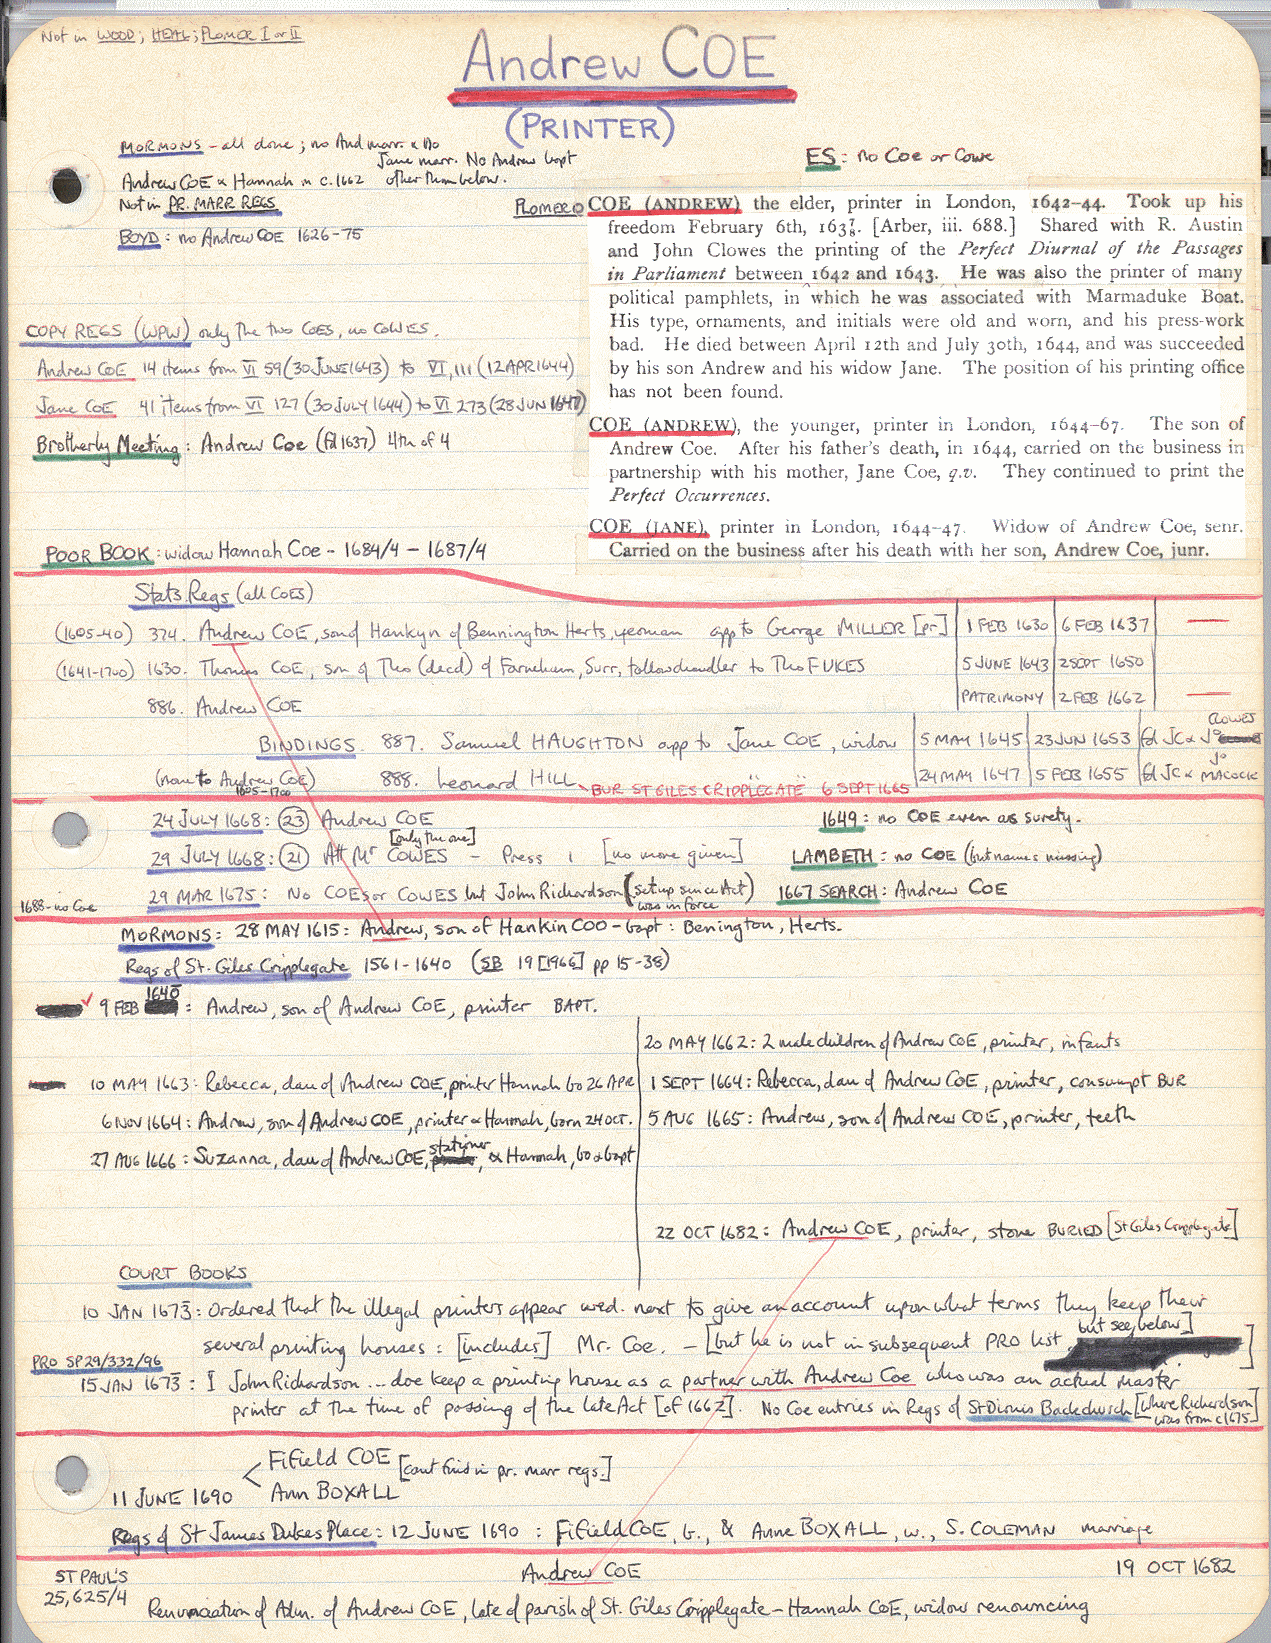 Not in WOOD; HEAL; PLOMER I or II
Andrew COE
(PRINTER)
MORMONS - all done; no And marr. & no
Jane marr. No Andrew bapt
Andrew COE & Hannah m c.1662 other than below.
Not in PR. MARR REGS
BOYD: no Andrew COE 1626-75
ES: no Coe or Cowe
PLOMER
COE (ANDREW) the elder, printer in London, 1642–44. Took up his
freedom February 6th, 163⅞. [Arber, iii. 688.] Shared with R. Austin
and John Clowes the printing of the Perfect Diurnal of the Passages
in Parliament between 1642 and 1643. He was also the printer of many
political pamphlets, in which he was associated with Marmaduke Boat.
His type, ornaments, and initials were old and worn, and his press-work
bad. He died between April 12th and July 30th, 1644, and was succeeded
by his son Andrew and his widow Jane. The position of his printing office
has not been found.
COE (ANDREW), the younger, printer in London, 1644–67. The son of
Andrew Coe. After his father's death, in 1644, carried on the business in
partnership with his mother, Jane Coe, q.v. They continued to print the
Perfect Occurrences.
COE (JANE), printer in London, 1644–47. Widow of Andrew Coe, senr.
Carried on the business after his death with her son, Andrew Coe, junr.
COPY REGS (WPW) only the two COES, no COWES.
Andrew COE 14 items from VI 59 (30 JUNE 1643) to VI, 111 (12 APR 1644)
Jane COE 41 items from VI 127 (30 JULY 1644) to VI 273 (28 JUN 1647)
Brotherly Meeting: Andrew Coe (fd 1637) 4th of 4
POOR BOOK: widow Hannah Coe - 1684/4 - 1687/4
Stats. Regs (all COES)
(1605-40) 374. Andrew COE, son of Hankyn of Bennington Herts, yeoman app to George MILLER [pr] 1 FEB 1630 6 FEB 1637 —
(1641-1700) 1630. Thomas COE, son of Tho (decd) of Farneham, Surr, tallowchandler to Tho FUKES 5 JUNE 1643 2 SEPT 1650
886. Andrew COE PATRIMONY 2 FEB 1662 —
BINDINGS. 887. Samuel HAUGHTON app to Jane COE, widow 5 MAY 1645 23 JUN 1653 fd JC & Jo CLOWES
(none to Andrew COE) 1605-1700 888. Leonard HILL " " 24 MAY 1647 5 FEB 1655 fd JC & Jo MACOCK
BUR ST GILES CRIPPLEGATE 6 SEPT 1665
24 JULY 1668: (23) Andrew COE
1649: no COE even as surety.
29 JULY 1668: (21) Att Mr COWES [only the one] - Press 1 [no more given]
LAMBETH: no COE (but names missing)
29 MAR 1675: No COES or COWES but John Richardson (set up since Act was in force)
1667 SEARCH: Andrew COE
1688 - no Coe
MORMONS: 28 MAY 1615: Andrew, son of Hankin COO - bapt: Benington, Herts.
Regs of St. Giles Cripplegate 1561-1640 (SB 19 [1966] pp 15-38)
9 FEB 1640: Andrew, son of Andrew COE, printer BAPT.
20 MAY 1662: 2 male children of Andrew COE, printer, infants
10 MAY 1663: Rebecca, dau of Andrew COE, printer Hannah bo 26 APR
1 SEPT 1664: Rebecca, dau of Andrew COE, printer, consumpt BUR
6 NOV 1664: Andrew, son of Andrew COE, printer & Hannah, born 24 OCT.
5 AUG 1665: Andrew, son of Andrew COE, printer, teeth
27 AUG 1666: Suzanna, dau of Andrew COE, stationer, & Hannah, bo & bapt
22 OCT 1682: Andrew COE, printer, stone BURIED [St Giles Cripplegate]
COURT BOOKS
10 JAN 1673: Ordered that the illegal printers appear wed. next to give an account upon what terms they keep their
several printing houses: [includes] Mr. Coe. - [but he is not in subsequent PRO list but see below]
PRO SP29/332/96
15 JAN 1673: I John Richardson ... doe keep a printing house as a partner with Andrew Coe who was an actual master
printer at the time of passing of the late Act [of 1662]. No Coe entries in Regs of St Dionis Backchurch [where Richardson was from c1675]
FiField COE [cant find in pr. marr regs.]
11 JUNE 1690 Ann BOXALL
Regs of St James Dukes Place: 12 JUNE 1690: FiField COE, b., & Anne BOXALL, w., S. COLEMAN marriage
ST PAUL'S
25,625/4
Andrew COE 19 OCT 1682
Renunciation of Adm. of Andrew COE, late of parish of St. Giles Cripplegate - Hannah COE, widow renouncing